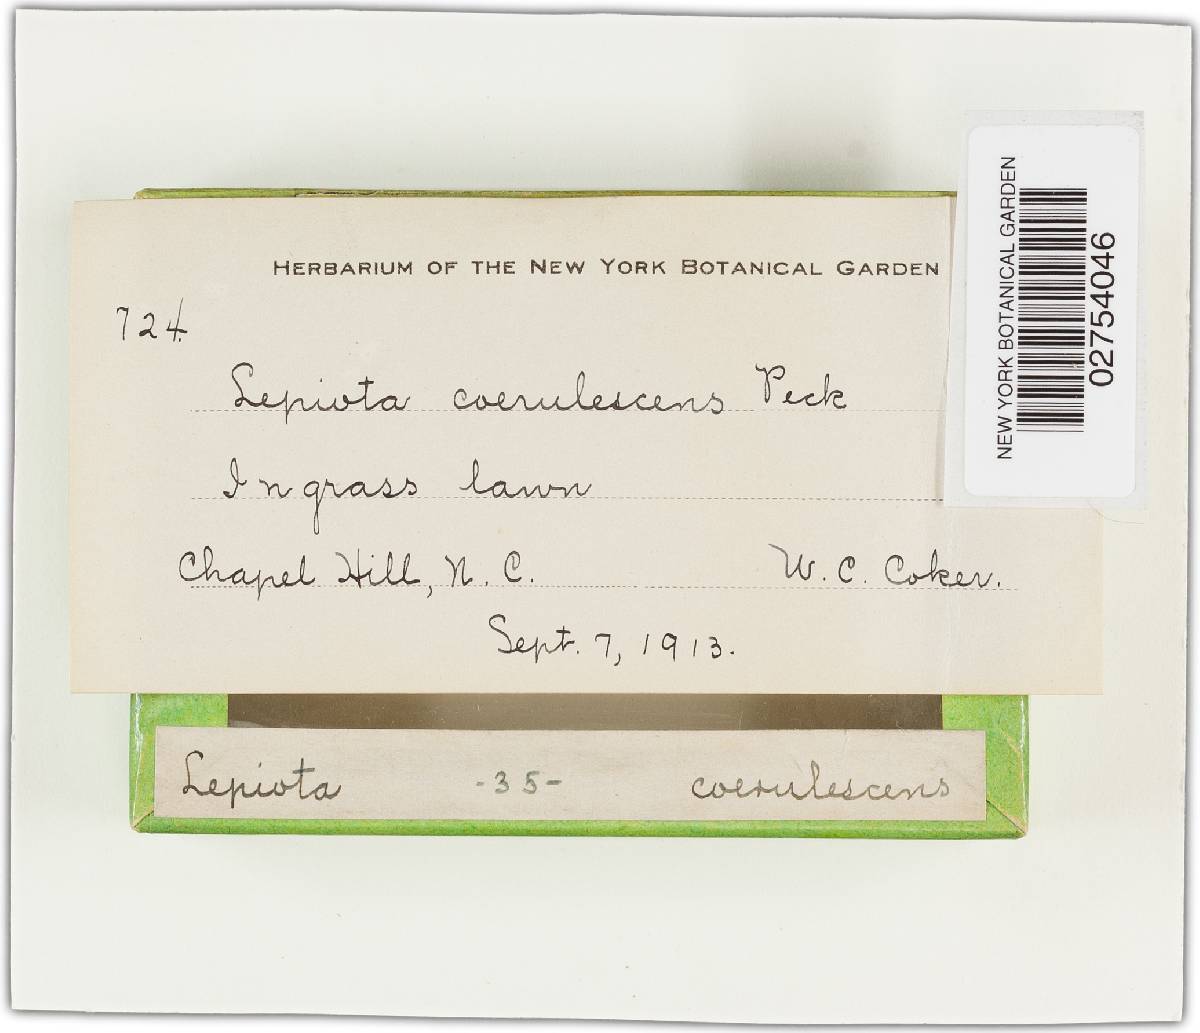 HERBARIUM OF THE NEW YORK BOTANICAL GARDEN
724.
Lepiota coerulescens Peck
In grass lawn
Chapel Hill, N. C. W. C. Coker.
Sept. 7, 1913.
Lepiota -35- coerulescens
NEW YORK BOTANICAL GARDEN
02754046